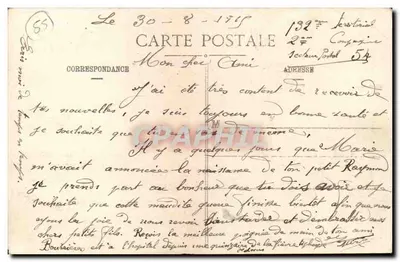 Le 30-8-1915
132e Territorial
2e Compagnie
Secteur Postal 54
CARTE POSTALE
CORRESPONDANCE
ADRESSE
Mon cher Ami
J'ai été très content de recevoir de
tes nouvelles, je suis toujours en bonne santé et
je souhaite que
Il y a quelques jours que Marie
m'avait annoncée la naissance de ton petit Raymond
je prends part au bonheur que tu dois avoir et je
souhaite que cette maudite guerre finisse bientôt afin que nous
ayons la joie de nous revoir et d'embrasser nos
chers petits fils. Reçois la meilleure poignée de main de ton ami
est à l'hôpital depuis une quinzaine de la fièvre typhoïde